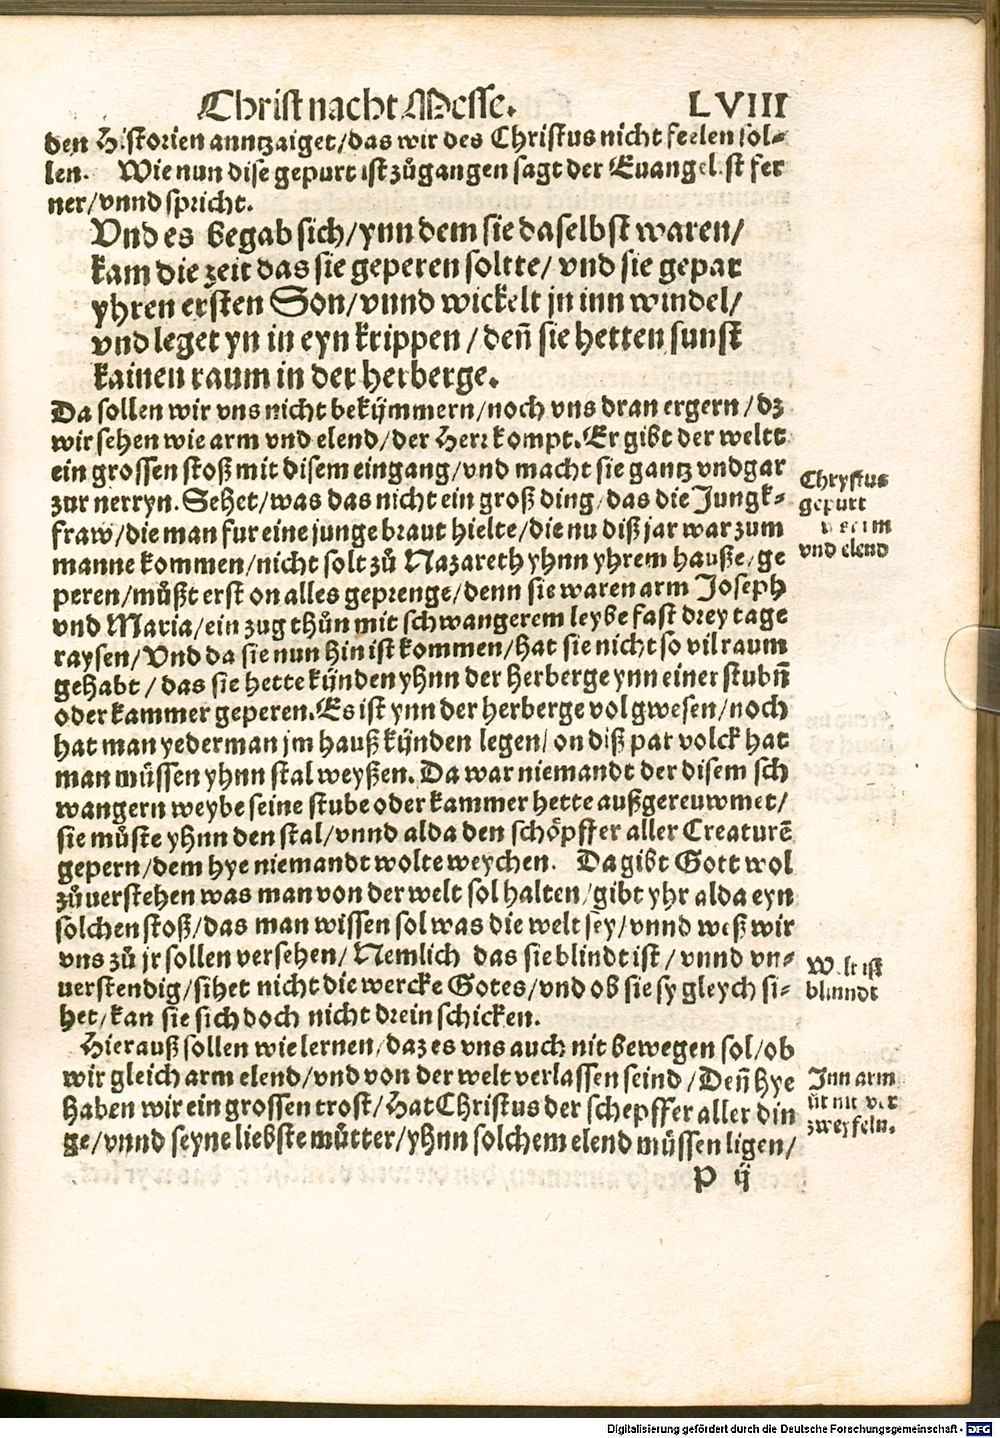 Christ nacht Messe. LVIII
den Historien anntzaiget/das wir des Christus nicht feelen sol-
len. Wie nun dise gepurt ist zůgangen sagt der Euangelist fer
ner/vnnd spricht.
Vnd es begab sich/ynn dem sie daselbst waren/
kam die zeit das sie geperen soltte/ vnd sie gepar
yhren ersten Son/vnnd wickelt jn inn windel/
vnd leget yn in eyn krippen/ deñ sie hetten sunst
kainen raum in der herberge.
Da sollen wir vns nicht bekÿmmern/noch vns dran ergern/dz
wir sehen wie arm vnd elend/der Herr kompt.Er gibt der weltt
ein grossen stoß mit disem eingang/vnd macht sie gantz vnd gar
zur nerryn. Sehet/was das nicht ein groß ding/das die Jungk-
fraw/die man fur eine junge braut hielte/die nu diß jar war zum
manne kommen/nicht solt zů Nazareth yhnn yhrem hauße/ge
peren/můßt erst on alles geprenge/denn sie waren arm Joseph
vnd Maria/ein zug thůn mit schwangerem leybe fast drey tage
raysen/Vnd da sie nun hin ist kommen/hat sie nicht so vil raum
gehabt/das sie hette kÿnden yhnn der herberge ynn einer stubñ
oder kammer geperen.Es ist ynn der herberge vol gwesen/noch
hat man yederman jm hauß kÿnden legen/on diß par volck hat
man müssen yhnn stal weyßen. Da war niemandt der disem sch
wangern weybe seine stube oder kammer hette außgereuwmet/
sie můste yhnn den stal/vnnd alda den schöpffer aller Creaturẽ
gepern/dem hye niemandt wolte weychen. Da gibt Gott wol
zůuerstehen was man von der welt sol halten/gibt yhr alda eyn
solchen stoß/das man wissen sol was die welt sey/vnnd weß wir
vns zů jr sollen versehen/Nemlich das sie blindt ist/vnnd vn-
uerstendig/sihet nicht die wercke Gotes/vnd ob sie sy gleych si-
het/kan sie sich doch nicht drein schicken.
Hierauß sollen wie lernen/daz es vns auch nit bewegen sol/ob
wir gleich arm elend/vnd von der welt verlassen seind/Deñ hye
haben wir ein grossen trost/Hat Christus der schepffer aller din
ge/vnnd seyne liebste můtter/yhnn solchem elend müssen ligen/
P ij
Chrystus
gepurt
vnd elend
Welt ist
blinndt
Inn arm
ůt nit ver
zweyfeln.
Digitalisierung gefördert durch die Deutsche Forschungsgemeinschaft - DFG